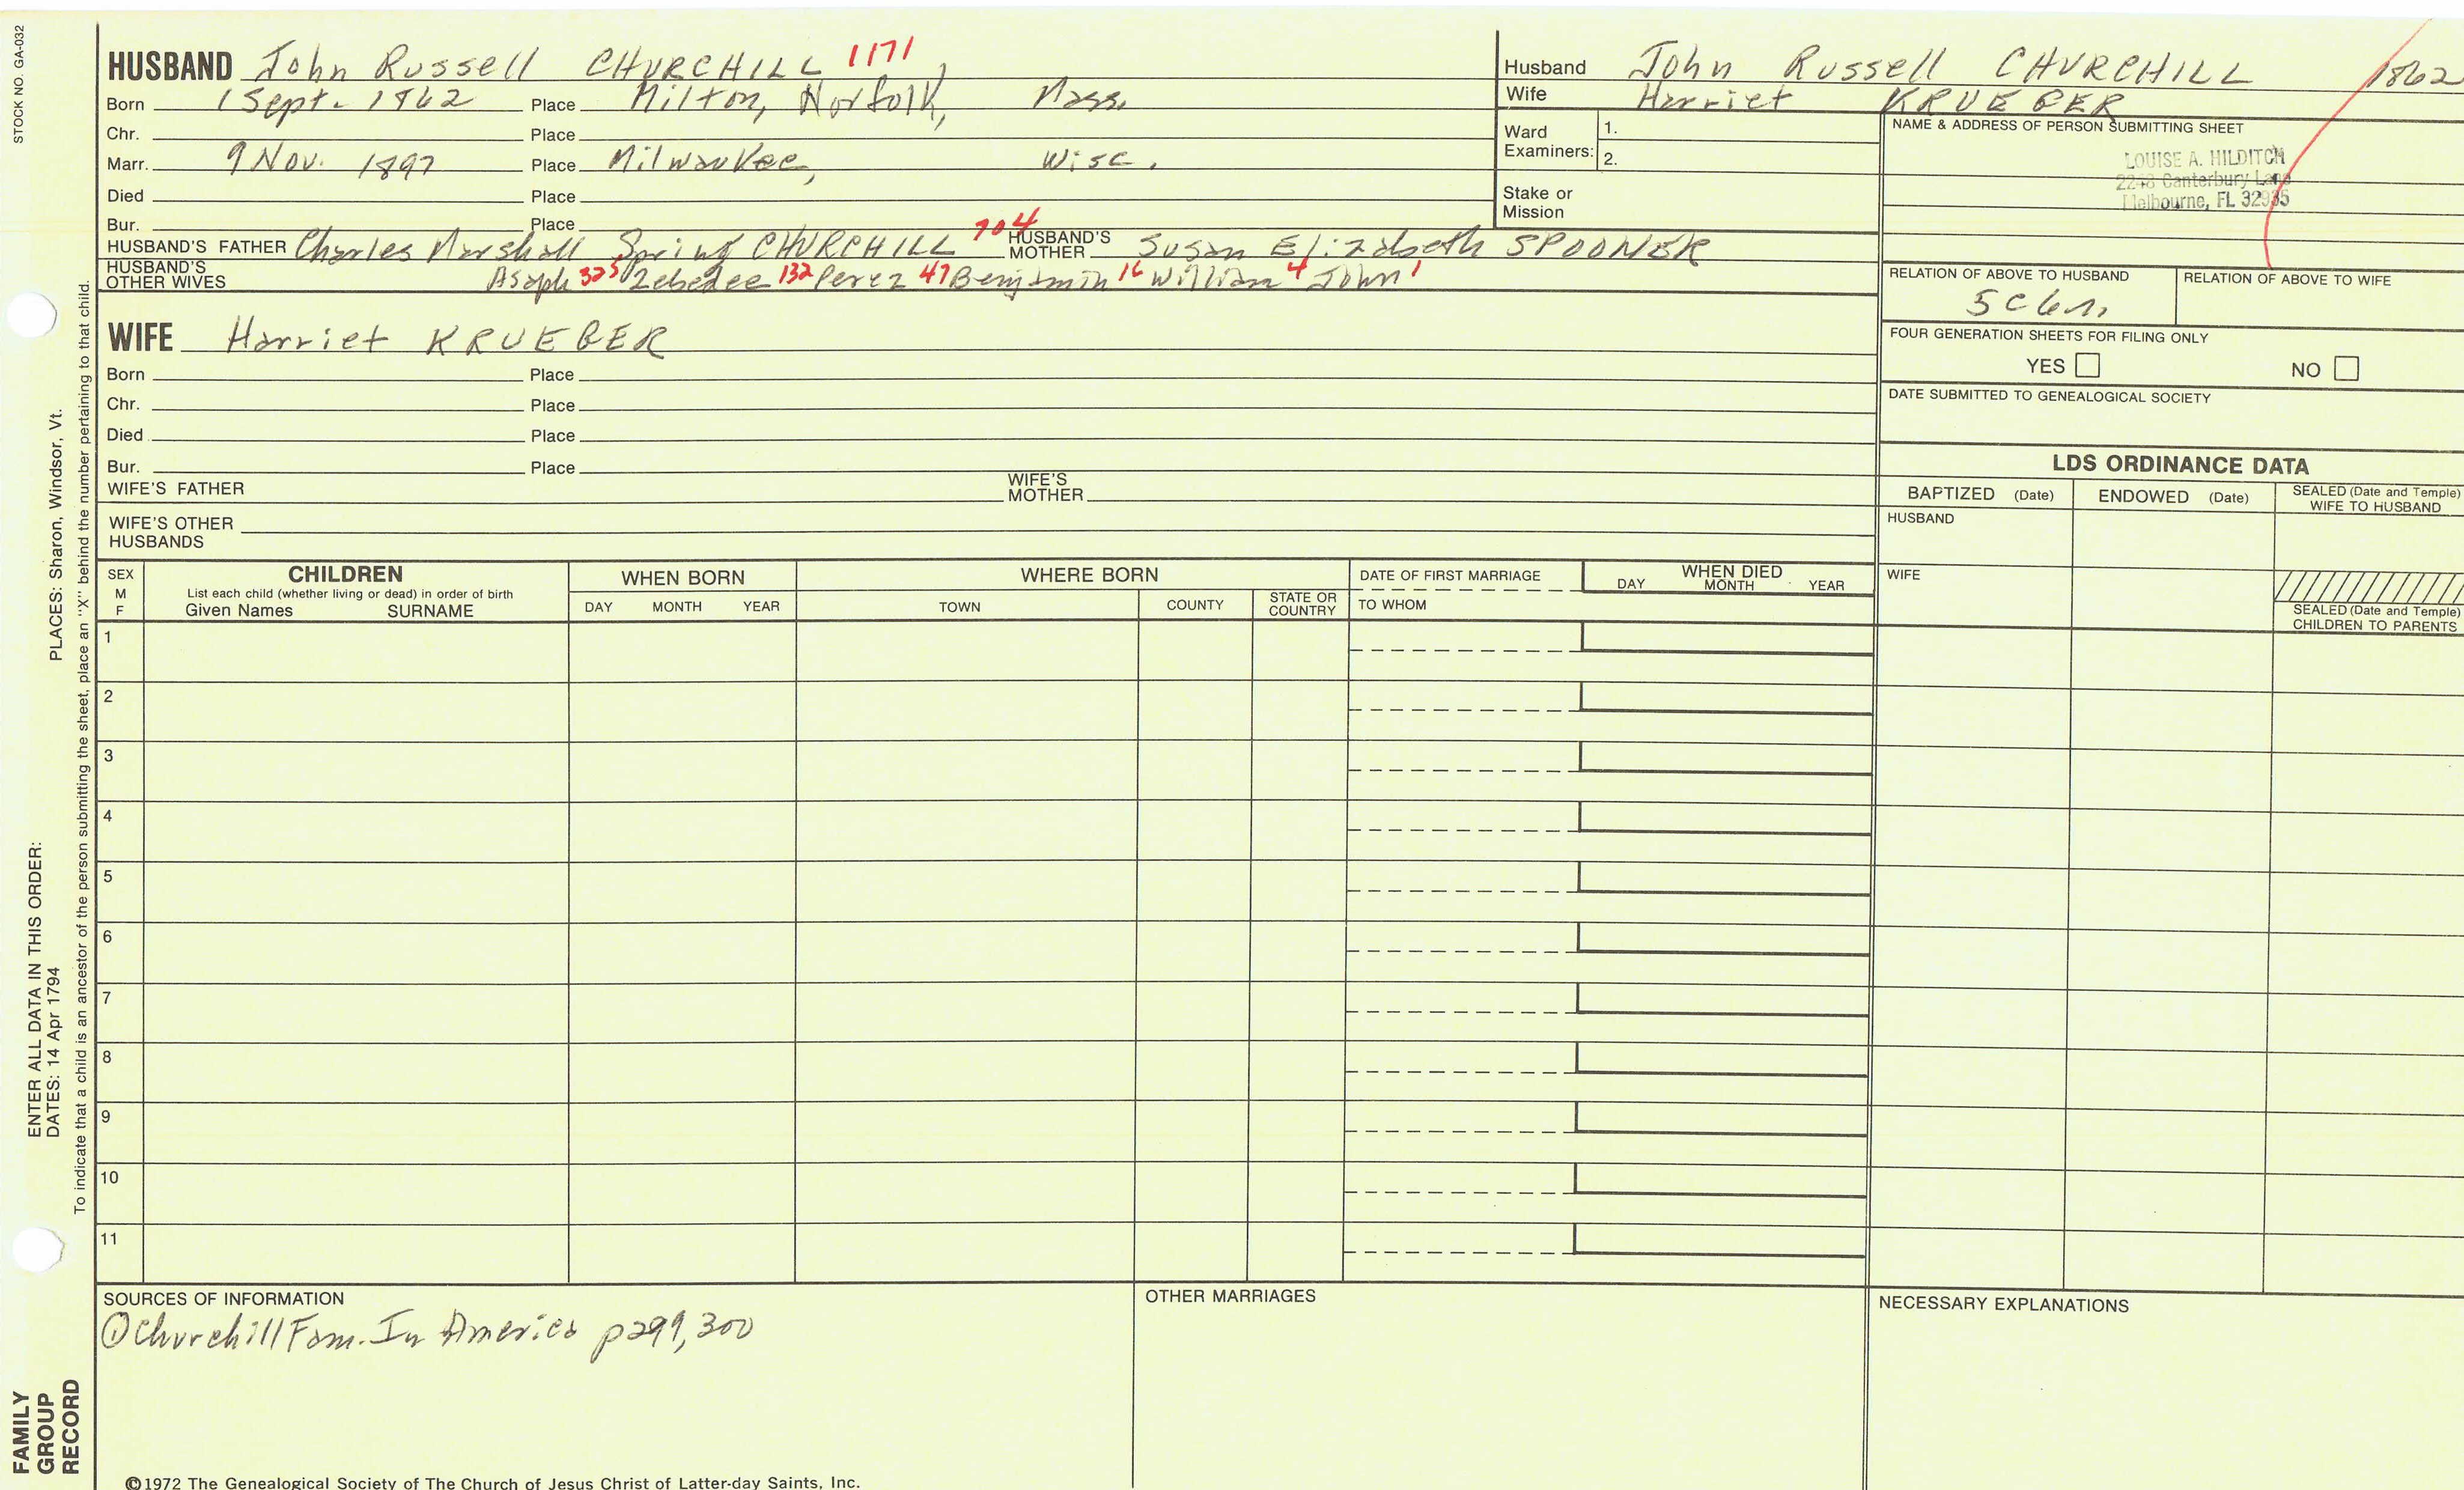 STOCK NO. GA-032
HUSBAND John Russell CHURCHILL 1171
Born 1 Sept. 1862 Place Milton, Norfolk, Mass.
Chr. Place
Marr. 9 Nov. 1897 Place Milwaukee, Wisc.
Died Place
Bur. Place
HUSBAND'S FATHER Charles Marshall Spring CHURCHILL 704 HUSBAND'S MOTHER Susan Elizabeth SPOONER
HUSBAND'S OTHER WIVES Asaph 325 Zebedee 132 Perez 47 Benjamin 16 William 4 John 1
Husband John Russell CHURCHILL 1862
Wife Harriet KRUEGER
Ward Examiners: 1.
2.
Stake or Mission
NAME & ADDRESS OF PERSON SUBMITTING SHEET
LOUISE A. HILDITCH
2248 Canterbury Lane
Melbourne, FL 32935
RELATION OF ABOVE TO HUSBAND RELATION OF ABOVE TO WIFE
5C6n
FOUR GENERATION SHEETS FOR FILING ONLY
YES NO
DATE SUBMITTED TO GENEALOGICAL SOCIETY
WIFE Harriet KRUEGER
Born Place
Chr. Place
Died Place
Bur. Place
WIFE'S FATHER WIFE'S MOTHER
WIFE'S OTHER HUSBANDS
LDS ORDINANCE DATA
BAPTIZED (Date) ENDOWED (Date) SEALED (Date and Temple) WIFE TO HUSBAND
HUSBAND
WIFE
SEALED (Date and Temple) CHILDREN TO PARENTS
SEX M F
CHILDREN
List each child (whether living or dead) in order of birth
Given Names SURNAME
WHEN BORN
DAY MONTH YEAR
WHERE BORN
TOWN COUNTY STATE OR COUNTRY
DATE OF FIRST MARRIAGE
TO WHOM
WHEN DIED
DAY MONTH YEAR
1
2
3
4
5
6
7
8
9
10
11
SOURCES OF INFORMATION
① Churchill Fam. In America p299, 300
OTHER MARRIAGES
NECESSARY EXPLANATIONS
©1972 The Genealogical Society of The Church of Jesus Christ of Latter-day Saints, Inc.
FAMILY GROUP RECORD
ENTER ALL DATA IN THIS ORDER:
DATES: 14 Apr 1794 PLACES: Sharon, Windsor, Vt.
To indicate that a child is an ancestor of the person submitting the sheet, place an "X" behind the number pertaining to that child.